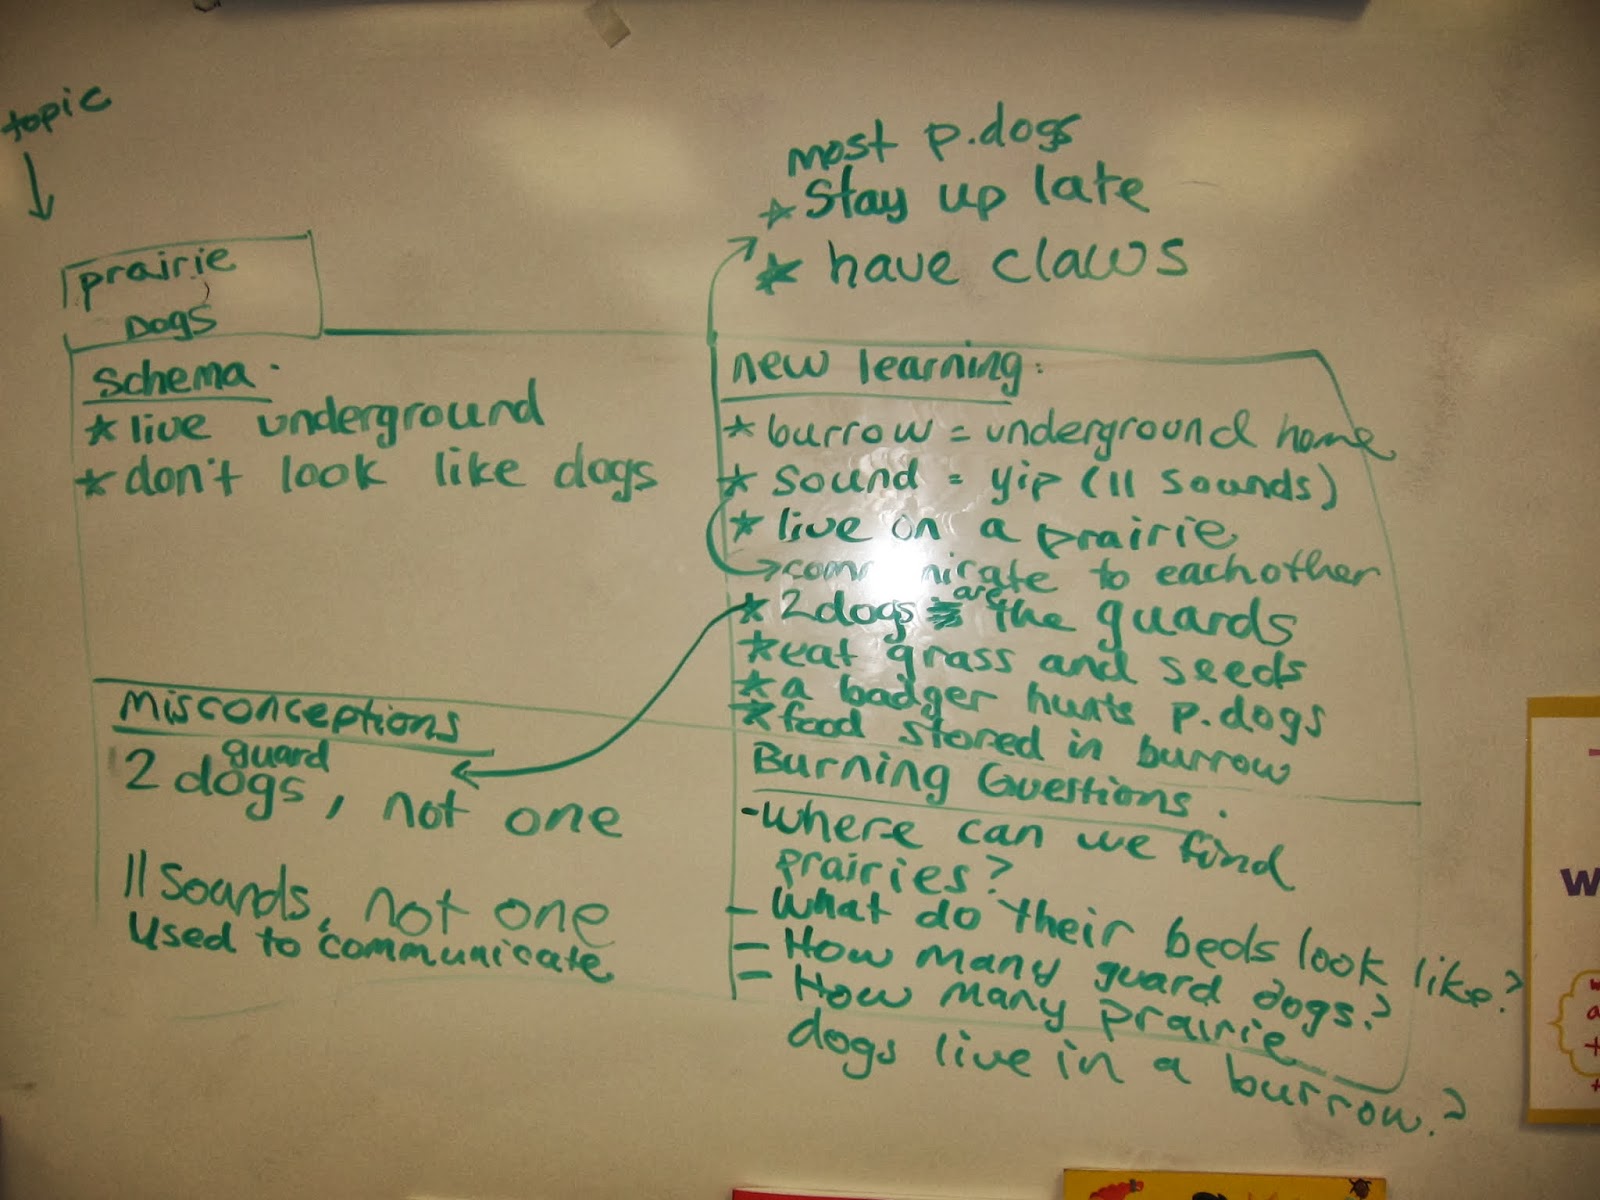 topic
prairie
Dogs
schema:
* live underground
* don't look like dogs
most p.dogs
* Stay up late
* have claws
new learning:
* burrow = underground home
* sound = yip (11 sounds)
* live on a prairie
→ communicate to eachother
* 2 dogs are the guards
* eat grass and seeds
* a badger hunts p.dogs
* food stored in burrow
Misconceptions
guard
2 dogs, not one
11 sounds, not one
used to communicate
Burning Questions.
- where can we find
prairies?
- What do their beds look like?
- How many guard dogs?
- How many prairie
dogs live in a burrow?